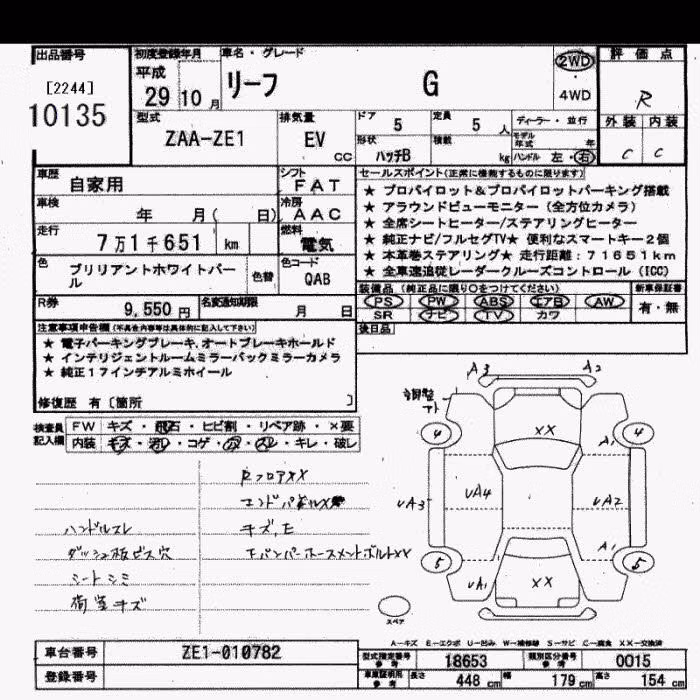 出品番号
[2244]
10135
初度登録年月
平成
29 10 月
車名・グレード
リーフ G
2WD
4WD
評価点
R
外装 内装
C C
型式
ZAA-ZE1
排気量
EV
CC
ドア 5
定員 5 人
形状 ハッチB
積載 kg
ディーラー・並行
モデル年式 年
ハンドル 左・右
車歴 自家用
シフト FAT
車検 年 月( 日)
冷房 AAC
走行 7万1千651 km
燃料 電気
色 ブリリアントホワイトパール
色替
色コード QAB
R券 9,550 円
名変通知期限 月 日
セールスポイント(正常に機能するものに限ります)
★ プロパイロット&プロパイロットパーキング搭載
★ アラウンドビューモニター(全方位カメラ)
★ 全席シートヒーター/ステアリングヒーター
★ 純正ナビ/フルセグTV★ 便利なスマートキー2個
★ 本革巻ステアリング★ 走行距離:71651km
★ 全車速追従レーダークルーズコントロール(ICC)
装備品(純正品に限り○をつけてください)
新車保証書
PS PW ABS エアB AW
SR ナビ TV カワ
有・無
後日品
注意事項申告欄(不具合内容等は具体的に記入して下さい)
★ 電子パーキングブレーキ,オートブレーキホールド
★ インテリジェントルームミラーバックミラーカメラ
★ 純正17インチアルミホイール
修復歴 有〔箇所 〕
検査員記入欄
FW キズ・飛石・ヒビ割・リペア跡・×要
内装 キズ・汚レ・コゲ・穴・スレ・キレ・破レ
RフロアXX
エンドパネルX
ハンドルスレ
キズ,E
ダッシュ板ビス穴
シートシミ
荷室キズ
A3 A2
4 XX 4
A1
UA3 UA4 UA2
5 A1 5
UA1 XX
スペア
A-キズ E-エクボ U-凹み W-補修跡 S-サビ C-腐食 XX-交換済
車台番号 ZE1-010782
登録番号
型式指定番号 参考 18653
類別区分番号 参考 0015
車庫証明用 参考 長さ 448 cm 幅 179 cm 高さ 154 cm